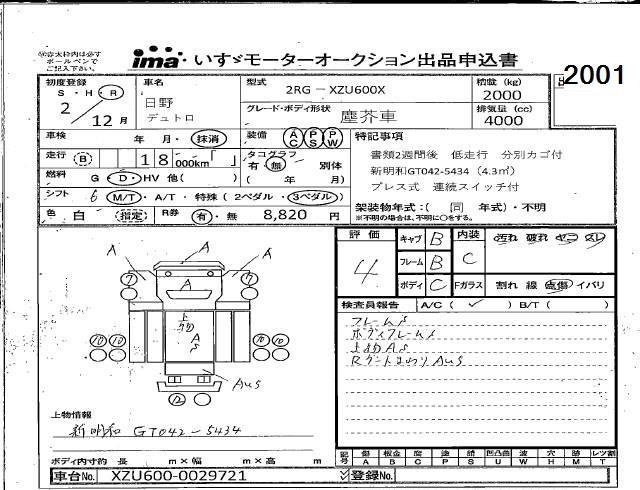 ㊟赤太枠内は必ず
ボールペンで
ご記入下さい。
ima・いすゞモーターオークション出品申込書
2001
初度登録
S・H・R
2 / 12月
車名
日野
デュトロ
型式
2RG－XZU600X
積載 (kg)
2000
グレード・ボディ形状
塵芥車
排気量 (cc)
4000
車検 年 月・抹消
装備 AC PS PW
特記事項
走行 (B) 18000km「 」
タコグラフ
有・無 別体
( 年 月)
書類2週間後 低走行 分別カゴ付
新明和GT042-5434 (4.3㎥)
プレス式 連続スイッチ付
燃料 G・D・HV 他( )
シフト 6 M/T・A/T・特殊(2ペダル・3ペダル)
架装物年式：( 同 年式)・不明
※不明の場合は、不明に〇をする。
色 白 (指定) R券 有・無 8,820 円
評価
4
キャブ B
フレーム B
ボディ C
内装 C
汚れ 破れ ヤニ スレ
Fガラス 割れ 線 点傷 イバリ
検査員報告 A/C( ✓ ) B/T( )
フレームS
ボディフレームS
上物AS
Rゲートまわり AUS
A
A
A
A
7
7
上物
AS
10 10
10 10
AUS
12
上物情報
新明和 GT042-5434
ボディ内寸約 長 m×幅 m×高 m
記号
傷 板金 腐 塗 錆 凹凸曲 波 穴 跡 レツ割
A B C P S U W H M T
車台No. XZU600-0029721
登録No.